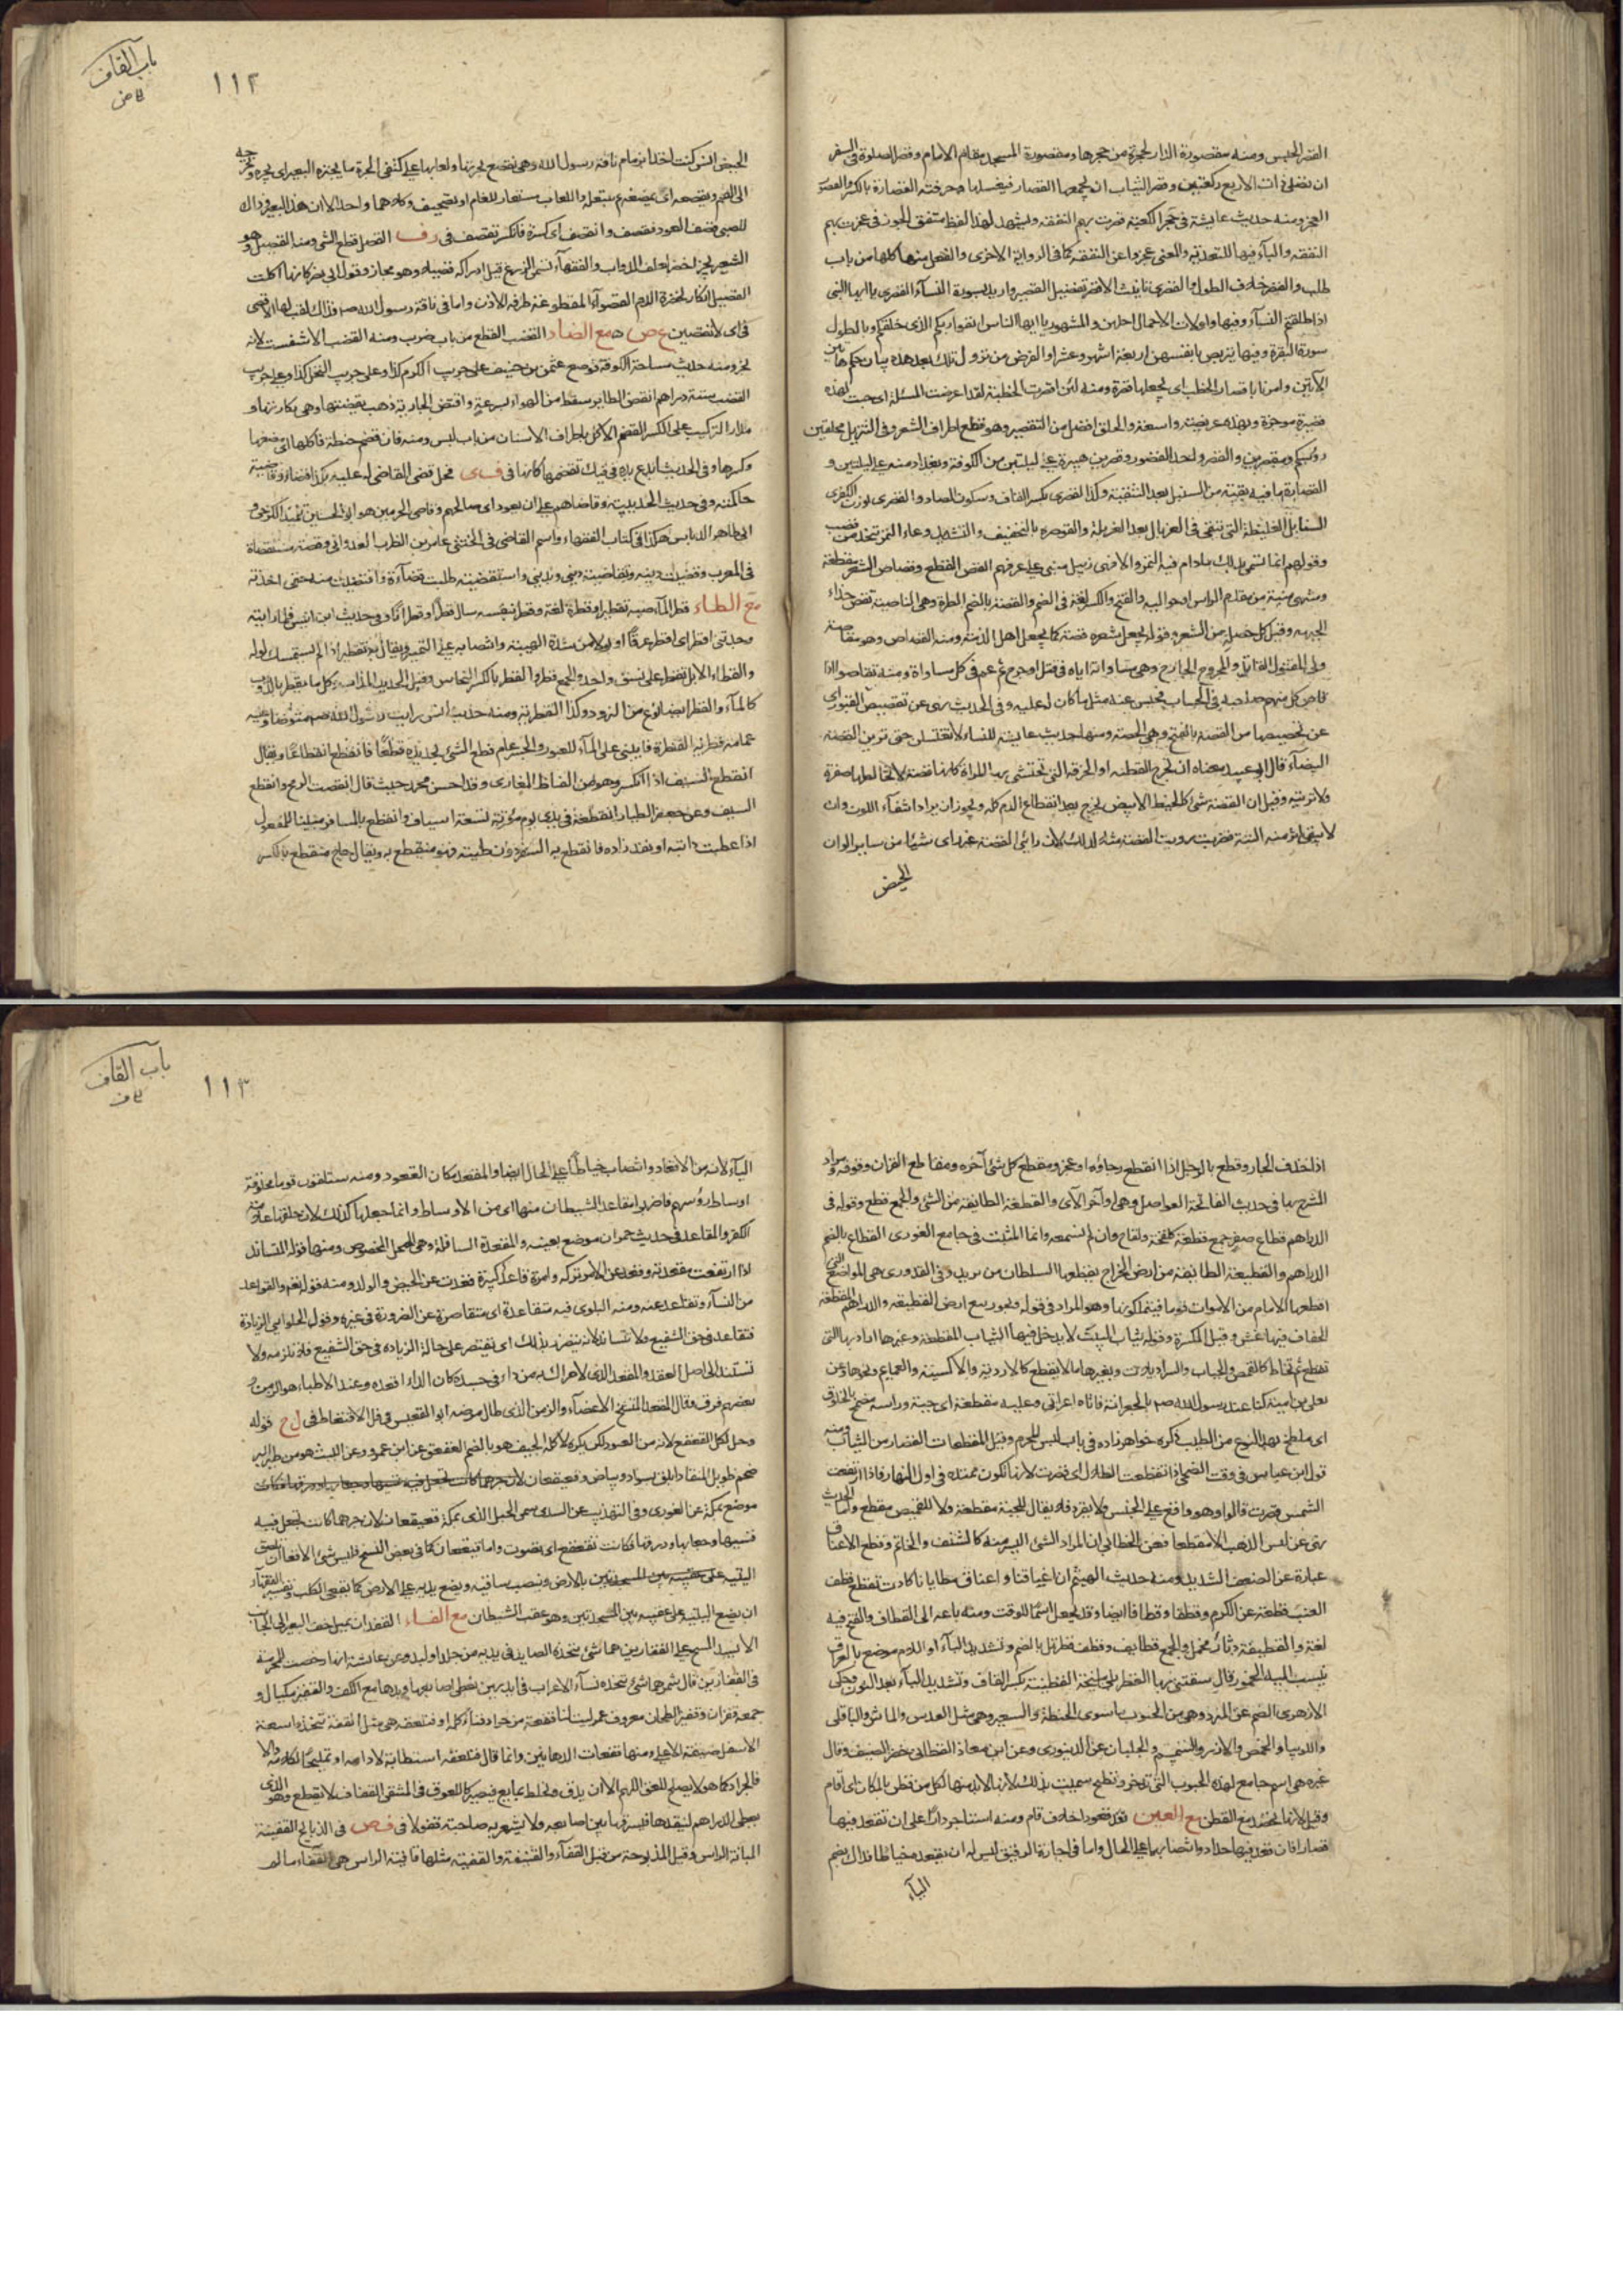 القصر الحبس ومنه مقصورة الدار لحجرة من حجرها ومقصورة المسجد مقام الامام وقصر الصلوة فى السفر
ان يصلى ذات الاربع ركعتين وقصر الثياب ان يجمعها القصار فيغسلها وحرفته القصارة بالكسر والقصر
العجز ومنه حديث عايشة فى حجر الكعبة قصرت بهم النفقة ويشهد لهذا لفظ متفق الجوزقى عجزت بهم
النفقة والباء فيها للتعدية والمعنى عجزوا عن النفقة كما فى الرواية الاخرى والفعل منها كلها من باب
طلب والقصر خلاف الطول والقصرى تانيث الاقصر تفضيل القصير واريد بسورة النساء القصرى يا ايها النبى
اذا طلقتم النساء وفيها واولات الاحمال اجلهن والمشهور يا ايها الناس اتقوا ربكم الذى خلقكم وبالطولى
سورة البقرة وفيها يتربصن بانفسهن اربعة اشهر وعشرا والغرض من نزول تلك بعد هذه بيان حكم هاتين
الآيتين وامرنا باقصار الخطب اى بجعلها قصيرة ومنه لئن اقصرت الخطبة لقد اعرضت المسئلة اى جئت بهذه
قصيرة موجزة وبهذه عريضة واسعة والحلق افضل من التقصير وهو قطع اطراف الشعر وفى التنزيل محلقين
رؤسكم ومقصرين والقصر واحد القصور وقصر بن هبيرة على ليلتين من الكوفة وبغداد منه على ليلتين و
القصارة ما فيه بقية من السنبل بعد التنقية وكذا القصرى بكسر القاف وسكون الصاد والقصرى بوزن الكفرى
السنابل الغليظة التى تبقى فى الغربال بعد الغربلة والقوصرة بالتخفيف والتشديد وعاء التمر يتخذ من قصب
وقولهم انما تسمى بذلك مادام فيه التمر والا فهى زبيل مبنى على عرفهم القص القطع وقصاص الشعر مقطعه
ومنتهى منبته من مقدم الراس او حواليه والفتح والكسر لغة فى الضم والقصة بالضم الطرة وهى الناصية تقص حذاء
الجبهة وقيل كل خصلة من الشعر وقوله يجعل شعره قصة كما يجعل اهل الذمة ومنه القصاص وهو مقاصة
ولى المقتول القاتل والمجروح الجارح وهى مساواته اياه فى قتل او جرح ثم عم فى كل مساواة ومنه تقاصوا اذا
قاص كل منهم صاحبه فى الحساب فحبس عنه مثل ما كان له عليه وفى الحديث نهى عن تقصيص القبور اى
عن تجصيصها من القصة بالفتح وهى الجصة ومنها حديث عايشة للنساء لا تغتسلن حتى ترين القصة
البيضاء قال ابو عبيد معناه ان تخرج القطنة او الخرقة التى تحتشى بها المراة كانها قصة لا تخالطها صفرة
ولا تربية وقيل ان القصة شئ كالخيط الابيض يخرج بعد انقطاع الدم كله ويجوز ان يراد انتفاء اللون وان
لا يبقى اثر منه البتة فضربت رؤيت القصة مثلا لذلك لان رائى القصة غير راى شيئا من ساير الوان
الحيض
باب القاف
ق ص
١١٢
الحيض انس كنت اخذا بزمام ناقة رسول الله وهى تقصع بجرتها ولعابها على كتفى الجرة ما يجتره البعير اى يجره ويخرجه
الى الفم ويقصعه اى يمضغه ثم يبتلعه واللعاب مستعار للغام او تصحيف وكلاهما واحد الا ان هذا للبعير وذاك
للصبى قصف العود فقصف وانقصف اى كسره فانكسر تقصف فى رف القصل قطع الشئ ومنه القصيل وهو
الشعير يجز اخضر لعلف الدواب والفقهاء تسمى الزرع قبل ادراكه قصيلا وهو مجاز وقول ابى بصر كانها اكلت
القصيل انكار لخضرة الدم القصواء المقطوعة طرف الاذن واما فى ناقة رسول الله صلعم فذاك لقب لها الاقصى
فى اى لا تقصين ع ص مع الضاد القضب القطع من باب ضرب ومنه القضب الاشفست لانه
يجز ومنه حديث مساحة الكوفة فوضع عثمن بن حنيف على جريب الكرم كذا وعلى جريب النخل كذا وعلى جريب
القضب ستة دراهم انقض الطاير سقط من الهواء بسرعة واقتض الجارية ذهب بقضتها وهى بكارتها و
مدار التركيب على الكسر القضم الاكل باطراف الاسنان من باب لبس ومنه فان قضم حنطة فاكلها اى مضغها
وكسرها وفى الحديث ايدع يده فى فيك تقضمها كانها فى ف ى فحل قضى القاضى له عليه بكذا قضاء وقاضيته
حاكمته وفى حديث الحديبية وقاضاهم على ان يعود اى صالحهم وقاضى الحرمين هو ابو الحسين تلميذ الكرخى و
ابى طاهر الدباس هكذا فى كتاب الفقهاء واسم القاضى فى الخنثى عامر بن الظرب العدوانى وقصته مستقصاة
فى المعرب وقضيت دينه وتقاضيته دينى وبدينى واستقضيته طلبت قضاءه واقتضيت منه حقى اخذته
مع الطاء قطر الماء صبه تقطيرا وقطره لغة وقطر بنفسه سال قطرا وقطرانا وفى حديث ابن انيس فلما رايته
وجدتنى اقطر اى اقطر عرقا او بولا من شدة الهيبة وانتصابه على التمييز ويقال به تقطير اذا لم يستمسك بوله
والقطار الابل تقطر على نسق واحد والجمع قطر والقطر بالكسر النحاس وقيل الحديد المذاب وكل ما يقطر بالذوب
كالماء والقطر ايضا نوع من البرود وكذا القطرية ومنه حديث انس رايت رسول الله صلعم متوضئا وعليه
عمامة قطرية القنطرة ما يبنى على الماء للعبور والجسر عام قطع الشئ بحديده قطعا فانقطع انقطاعا ويقال
انقطع السيف اذا انكسر وهو من الفاظ المغازى وقد احسن محمد حيث قال انقصف الرمح وانقطع
السيف وعن جعفر الطيار انقطعت فى يدى يوم مؤتة تسعة اسياف وانقطع بالمسافر مبنيا للمفعول
اذا عطبت دابته او نفد زاده فانقطع به السفر دون طيته فهو منقطع به ويقال حاج منقطع بالكسر
اذا خلف الجار وقطع بالرجل اذا انقطع رجاؤه او عجز ومقطع كل شئ آخره ومقاطع القران وقوفه ومراد
الشرح بها فى حديث الفاتحة الفواصل وهى اواخر الآى والقطعة الطايفة من الشئ والجمع قطع وقوله فى
الدراهم قطاع صفر جمع قطعة كلقحة ولقاح وان لم نسمعه وانما المثبت فى جامع الغورى القطاع بالضم
الدراهم والقطيعة الطايفة من ارض الخراج يقطعها السلطان من يريد وفى القدورى هى المواضع التى
اقطعها الامام من الاموات قوما فيتملكونها وهو المراد فى قوله ويجوز بيع ارض القطيعة والدراهم المقطعة
الخفاف فيها غش وقيل المكسرة وقوله ثياب البيت لا يدخل فيها الثياب المقطعة وغيرها اراد بها التى
تقطع ثم تخاط كالقمص والجباب والسراويلات وبغيرها ما لا يقطع كالاردية والاكسية والعمايم ونحوها وعن
يعلى بن امية كنا عند رسول الله صلعم بالجعرانة فاتاه اعرابى وعليه مقطعة اى جبة وراسه مضمخ بالخلوق
اى ملطخ بهذا النوع من الطيب ذكره خواهرزاده فى باب لبس المحرم وقيل المقطعات القصار من الثياب ومنه
قول ابن عباس فى وقت الضحى اذا تقطعت الظلال اى قصرت لانها تكون ممتدة فى اول النهار فاذا ارتفعت
الشمس قصرت قالوا وهو واقع على الجنس ولا يفرد فلا يقال للجبة مقطعة ولا للقميص مقطع واما الحديث
نهى عن لبس الذهب الا مقطعا فعن الخطابى ان المراد الشئ اليسير منه كالشنف والخاتم وقطع الاعناق
عبارة عن الضعف الشديد ومنه حديث الهيثم ان اعناقنا واعناق مطايانا كادت تقطع قطف
العنب قطعه عن الكرم وقطفا وقطافا ايضا وقد يجعل اسما للوقت ومنه باعه الى القطاف والفتح فيه
لغة والقطيفة دثار مخمل والجمع قطايف وقطف قطربل بالضم وتشديد الباء او اللام موضع بالعراق
ينسب اليه الخمور قال سقتنى بها القطربلى مليحة القطنية بكسر القاف وتشديد الياء بعد النون وحكى
الازهرى الضم عن المبرد وهى من الحبوب ما سوى الحنطة والشعير وهى مثل العدس والماش والباقلى
واللوبيا والحمص والارز والسمسم والجلبان عن الدينورى وعن ابى معاذ القطانى خضر الصيف وقال
غيره هى اسم جامع لهذه الحبوب التى تدخر وتطبخ سميت بذلك لانها لا بد منها لكل من قطن بالمكان اى اقام
وقيل لانها تحصد مع القطن مع العين قعد قعودا خلاف قام ومنه استاجر دارا على ان تقعد فيها
قصارا فان قعد فيها حدادا وانتصابهما على الحال واما فى اجارة الرقيق ليس له ان يقعده خياطا فذاك بضم
الياء
باب القاف
ق ف
١١٣
الياء لانه من الاقعاد وانتصاب خياطا على الحال ايضا والمقعد مكان القعود ومنه ستلقون قوما محلوقة
اوساط رؤسهم فاضربوا مقاعد الشيطان منها اى من الاوساط وانما جعلها كذلك لان حلقها علامة
الكفر والمقاعد فى حديث حمران موضع بعينه والمقعدة السافلة وهى المحل المخصوص ومنها قوله المتساند
اذا ارتفعت مقعدته وقعد عن الامر تركه وامرة قاعد كبيرة قعدت عن الحيض والولد ومنه قوله تعم والقواعد
من النساء وتقاعد عنه ومنه البلوى فيه متقاعدة اى متقاصرة عن الضرورة فى غيره وقول الحلوايى الزيادة
تتقاعد فى حق الشفيع ولا تتساند لانه يتضرر بذلك اى يقتصر على حالة الزيادة فى حق الشفيع فلا تلزمه ولا
تستند الى اصل العقد والمقعد الذى لا حراك به من داء فى جسده كان الداء اقعده وعند الاطباء هو الزمن و
بعضهم فرق وقال المقعد المتشنج الاعضاء والزمن الذى طال مرضه ابو القعيس فى فل الاقتعاط فى ل ح قوله
وحل اكل القعقع لانه من الصيود لكن يكره لاكله الجيف هو بالضم العقعق عن ابن عمرو وعن الليث هو من طير البر
ضخم طويل المنقار ابلق بسواد وبياض وقعيقعان
موضع بمكة عن الغورى وفى التهذيب عن السدى سمى الجبل الذى بمكة قعيقعان لان جرهما كانت تجعل فيه
قسيها وجعابها ودروقها فكانت تقعقع اى تصوت واما قيقعان كما فى بعض النسخ فليس بشئ الاقعاء ان يلصق
اليتيه بالارض وينصب ساقيه ويضع يديه على الارض كما يقعى الكلب وتفسير الفقهاء
ان يضع اليتيه على عقبيه بين السجدتين وهو عقب الشيطان مع الفاء القفد ان يميل خف البعير الى الجانب
الانسى المسح على القفازين هما شئ يتخذه الصايد فى يديه من جلد او لبد وعن عايشة انها رخصت للمحرمة
فى القفازين قال شمر هما شئ تتخذه نساء الاعراب فى ايديهن يغطى اصابعها ويدها مع الكف والقفيز مكيال و
جمعه قفزان وقفيز الطحان معروف عمر ليت لنا قفعة من جراد فناكله او فنلعقه هى مثل القفة تتخذ واسعة
الاسفل ضيقة الاعلى ومنها قفعات الدهانين وانما قال فنلعقه استطابة لادامه او تمليحا لكلامه والا
فالجراد كما هو لا يصلح للعق اللهم الا ان يدق ويخلط بمايع فيصير كاللعوق فى المشقى القفاف لا يقطع وهو الذى
يعطى الدراهم لينقدها فيسرقها بين اصابعه ولا يشعر به صاحبه قفولا فى ف ص فى الذبايح القفينة
المبانة الراس وقيل المذبوحة من قبل القفاء والقنيفة والقفية مثلها قافية الراس هى القفاء سالم